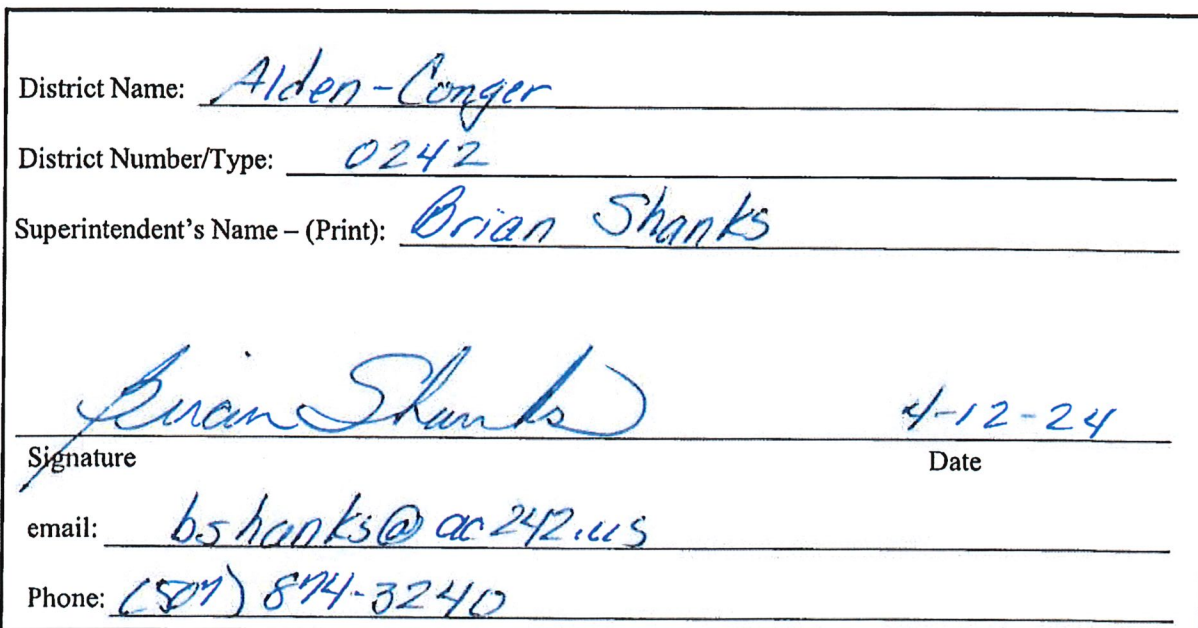 District Name: Alden-Conger
District Number/Type: 0242
Superintendent's Name – (Print): Brian Shanks
Brian Shanks 4-12-24
Signature Date
email: bshanks@ac242.us
Phone: (507) 874-3240